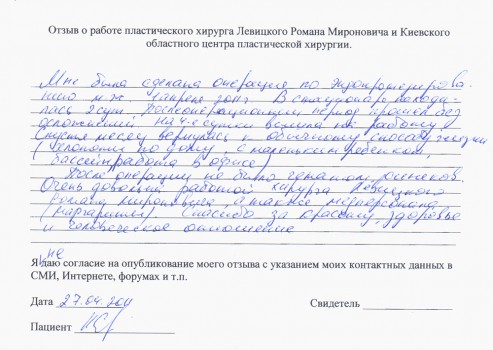 Отзыв о работе пластического хирурга Левицкого Романа Мироновича и Киевского
областного центра пластической хирургии.
Мне была сделана операция по эндопротезирова-
нию м.ж. 1 апреля 2011г. В стационаре находи-
лась 2 сут. Послеоперационный период прошел без
осложнений. На 4-е сутки вышла на работу.
Спустя месяц вернулась к обычному способу жизни
( по дому, с маленьким ребенком,
бассейн работа в офисе)
После операции не было синяков.
Очень довольна работой хирурга Левицкого
Романа Мироновича, а также медперсонала
(Маргариты). Спасибо за красоту, здоровье
и человеческое отношение
не
Я даю согласие на опубликование моего отзыва с указанием моих контактных данных в
СМИ, Интернете, форумах и т.п.
Дата 27.04.2011 Свидетель
Пациент